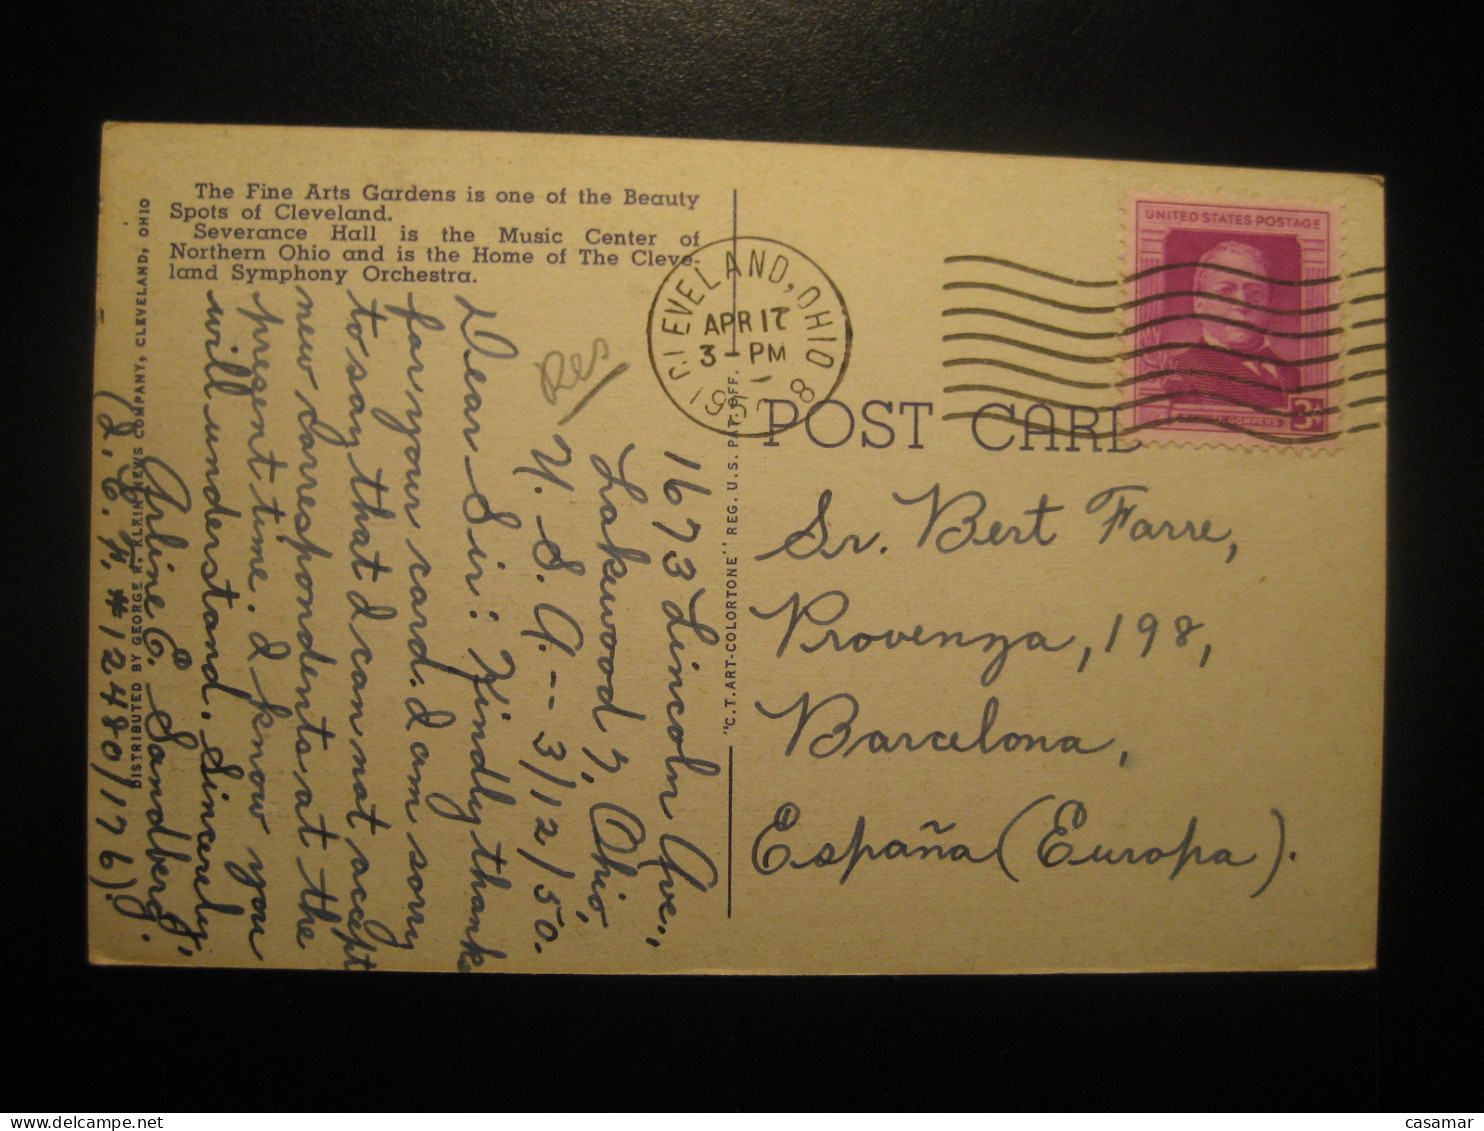 The Fine Arts Gardens is one of the Beauty
Spots of Cleveland.
Severance Hall is the Music Center of
Northern Ohio and is the Home of The Cleve-
land Symphony Orchestra.
DISTRIBUTED BY GEORGE R. KLEIN NEWS COMPANY, CLEVELAND, OHIO
"C.T. ART-COLORTONE" REG. U.S. PAT. OFF.
Res
1673 Lincoln Ave.,
Lakewood 7, Ohio,
U. S. A. -- 3/12/50.
Dear Sir: Kindly thanks
for your card. I am sorry
to say that I can not accept
new correspondents at the
present time. I know you
will understand. Sincerely,
Arline E. Sandberg.
(I. C. H. #12480/176).
CLEVELAND, OHIO
APR 17
3-PM
1950
8
UNITED STATES POSTAGE
SAMUEL GOMPERS
3¢
POST CARD
Sr. Bert Farre,
Provenza, 198,
Barcelona,
España (Europa).
casamar
www.delcampe.net